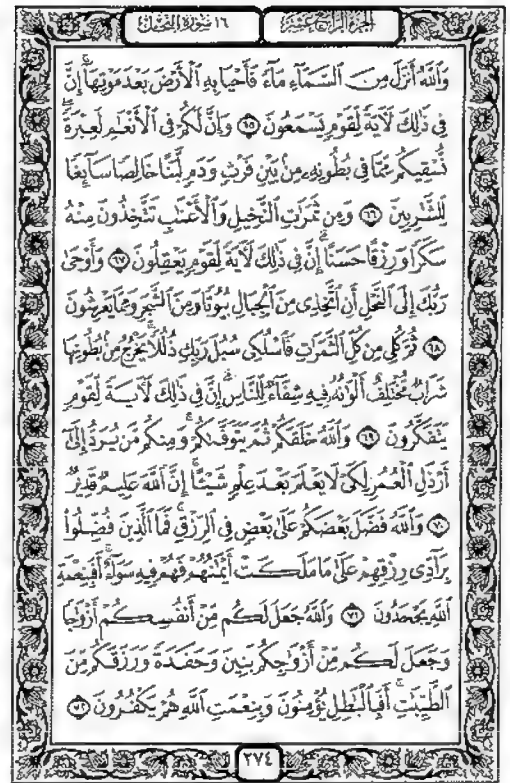 ١٦ سورة النحل
الجزء الرابع عشر
وَٱللَّهُ أَنزَلَ مِنَ ٱلسَّمَآءِ مَآءً فَأَحْيَا بِهِ ٱلْأَرْضَ بَعْدَ مَوْتِهَآ ۚ إِنَّ
فِى ذَٰلِكَ لَـَٔايَةً لِّقَوْمٍ يَسْمَعُونَ ٦٥ وَإِنَّ لَكُمْ فِى ٱلْأَنْعَٰمِ لَعِبْرَةً ۖ
نُّسْقِيكُم مِّمَّا فِى بُطُونِهِۦ مِنۢ بَيْنِ فَرْثٍ وَدَمٍ لَّبَنًا خَالِصًا سَآئِغًا
لِّلشَّٰرِبِينَ ٦٦ وَمِن ثَمَرَٰتِ ٱلنَّخِيلِ وَٱلْأَعْنَٰبِ تَتَّخِذُونَ مِنْهُ
سَكَرًا وَرِزْقًا حَسَنًا ۗ إِنَّ فِى ذَٰلِكَ لَـَٔايَةً لِّقَوْمٍ يَعْقِلُونَ ٦٧ وَأَوْحَىٰ
رَبُّكَ إِلَى ٱلنَّحْلِ أَنِ ٱتَّخِذِى مِنَ ٱلْجِبَالِ بُيُوتًا وَمِنَ ٱلشَّجَرِ وَمِمَّا يَعْرِشُونَ
٦٨ ثُمَّ كُلِى مِن كُلِّ ٱلثَّمَرَٰتِ فَٱسْلُكِى سُبُلَ رَبِّكِ ذُلُلًا ۚ يَخْرُجُ مِنۢ بُطُونِهَا
شَرَابٌ مُّخْتَلِفٌ أَلْوَٰنُهُۥ فِيهِ شِفَآءٌ لِّلنَّاسِ ۗ إِنَّ فِى ذَٰلِكَ لَـَٔايَةً لِّقَوْمٍ
يَتَفَكَّرُونَ ٦٩ وَٱللَّهُ خَلَقَكُمْ ثُمَّ يَتَوَفَّىٰكُمْ ۚ وَمِنكُم مَّن يُرَدُّ إِلَىٰٓ
أَرْذَلِ ٱلْعُمُرِ لِكَىْ لَا يَعْلَمَ بَعْدَ عِلْمٍ شَيْـًٔا ۚ إِنَّ ٱللَّهَ عَلِيمٌ قَدِيرٌ
٧٠ وَٱللَّهُ فَضَّلَ بَعْضَكُمْ عَلَىٰ بَعْضٍ فِى ٱلرِّزْقِ ۚ فَمَا ٱلَّذِينَ فُضِّلُوا۟
بِرَآدِّى رِزْقِهِمْ عَلَىٰ مَا مَلَكَتْ أَيْمَٰنُهُمْ فَهُمْ فِيهِ سَوَآءٌ ۚ أَفَبِنِعْمَةِ
ٱللَّهِ يَجْحَدُونَ ٧١ وَٱللَّهُ جَعَلَ لَكُم مِّنْ أَنفُسِكُمْ أَزْوَٰجًا
وَجَعَلَ لَكُم مِّنْ أَزْوَٰجِكُم بَنِينَ وَحَفَدَةً وَرَزَقَكُم مِّنَ
ٱلطَّيِّبَٰتِ ۚ أَفَبِٱلْبَٰطِلِ يُؤْمِنُونَ وَبِنِعْمَتِ ٱللَّهِ هُمْ يَكْفُرُونَ ٧٢
٢٧٤